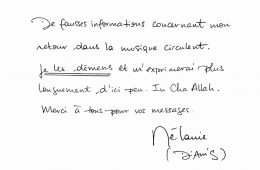 De fausses informations concernant mon
retour dans la musique circulent.
Je les démens et m'exprimerai plus
longuement d'ici peu. In Cha Allah.
Merci à tous pour vos messages.
Mélanie
(Diam's)